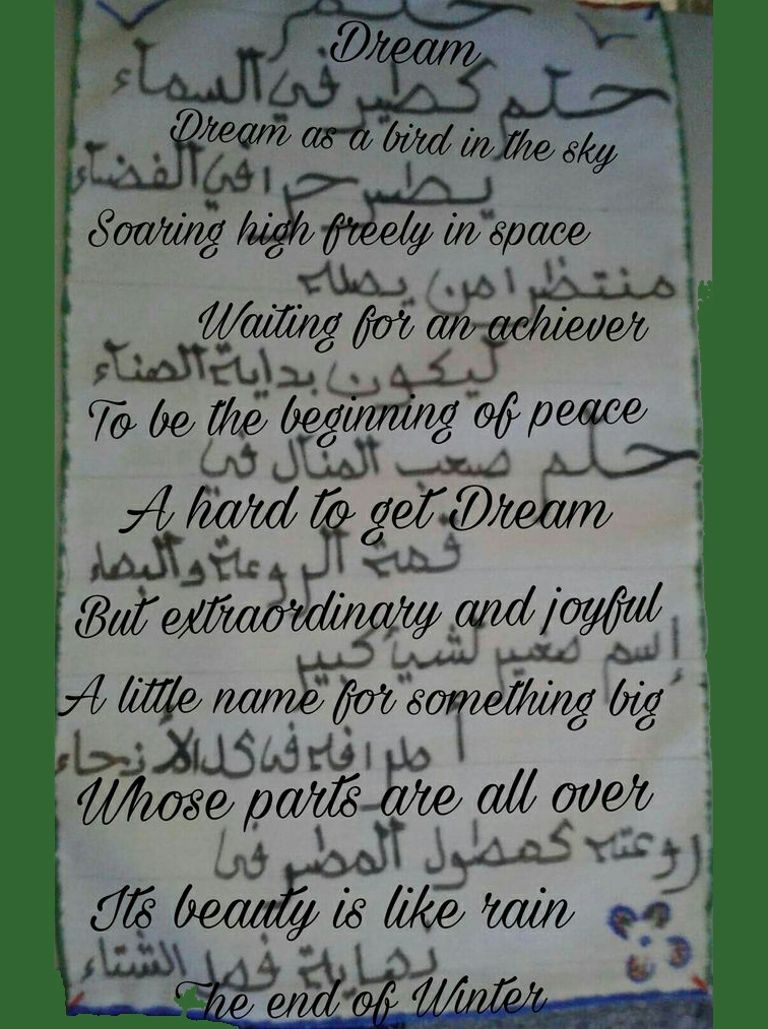 حلم
Dream
حلم كطير في السماء
Dream as a bird in the sky
يطير حرا في الفضاء
Soaring high freely in space
منتظرا من يصله
Waiting for an achiever
ليكون بداية الهناء
To be the beginning of peace
حلم صعب المنال في
A hard to get Dream
قمة الروعة والبهاء
But extraordinary and joyful
إسم صغير لشيئ كبير
A little name for something big
أطرافه في كل الأنحاء
Whose parts are all over
روعته كهطول المطر في
Its beauty is like rain
نهاية فصل الشتاء
The end of Winter